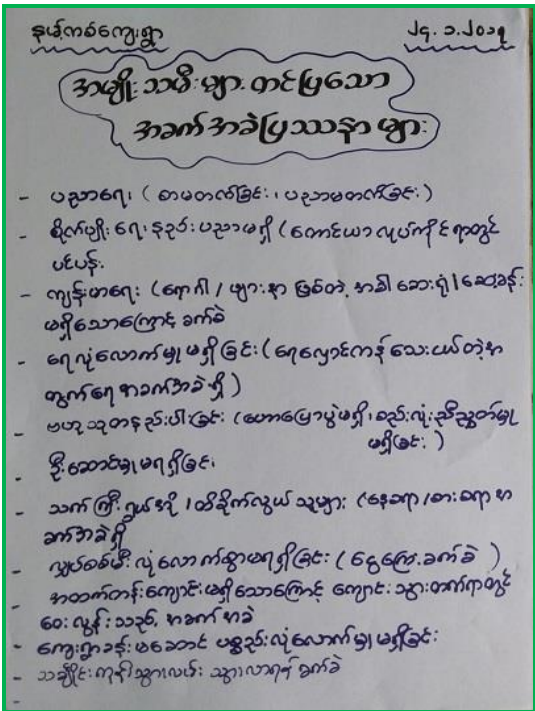 နမ့်ကစ်ကျေးရွာ ၂၄.၁.၂၀၁၇
အမျိုးသမီးများတင်ပြသော
အခက်အခဲပြဿနာများ
- ပညာရေး (စာမတတ်ခြင်း၊ ပညာမတတ်ခြင်း)
- စိုက်ပျိုးရေးနည်းပညာမရှိ (တောင်ယာလုပ်ကိုင်ရာတွင်
ပင်ပန်း
- ကျန်းမာရေး (ရောဂါ/ဖျားနာ ဖြစ်တဲ့အခါ ဆေးရုံ/ဆေးခန်း
မရှိသောကြောင့် ခက်ခဲ
- ရေလုံလောက်မှုမရှိခြင်း (ရေလှောင်ကန်သေးငယ်တဲ့အ
တွက်ရေအခက်အခဲရှိ)
- ဗဟုသုတနည်းပါးခြင်း (ဟောပြောပွဲမရှိ၊ စည်းလုံးညီညွတ်မှု
မရှိခြင်း)
- ဦးဆောင်မှုမရရှိခြင်း
- သက်ကြီးရွယ်အို/ထိခိုက်လွယ်သူများ (နေရာ/စားရာ အ
ခက်အခဲရှိ
- လျှပ်စစ်မီးလုံလောက်စွာမရရှိခြင်း (ငွေကြေးခက်ခဲ)
- အထက်တန်းကျောင်းမရှိသောကြောင့် ကျောင်းသွားတက်ရာတွင်
ဝေးလွန်းသည့် အခက်အခဲ
- ကျေးရွာခန်းမဆောင် ပစ္စည်းလုံလောက်မှုမရှိခြင်း
- သချိုင်းကုန်းသွားလမ်း သွားလာရန် ခက်ခဲ
-